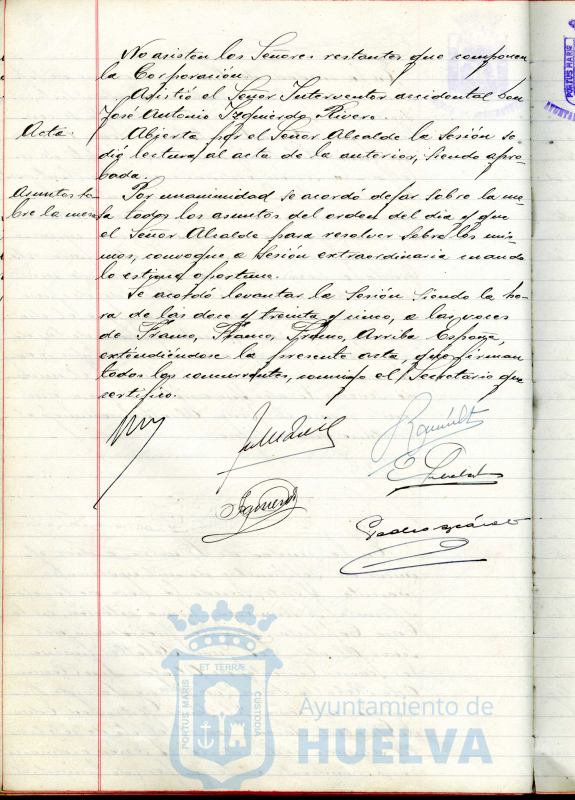 No asisten los Señores restantes que componen
la Corporación
Asistió el Señor Interventor accidental Don
José Antonio Izquierdo Rivero.
Acta.
Abierta por el Señor Alcalde la Sesión se
dió lectura al acta de la anterior, siendo apro-
bada.
Asuntos so-
bre la mesa
Por unanimidad se acordó dejar sobre la me-
sa todos los asuntos del orden del dia y que
el Señor Alcalde para resolver sobre los mis-
mos, convoque a Sesión extraordinaria cuando
lo estime oportuno.
Se acordó levantar la Sesión siendo la ho-
ra de las doce y treinta y cinco, a las voces
de Franco, Franco, Franco, Arriba España,
extendiéndose la presente acta, que firman
todos los concurrentes, conmigo el Secretario que
certifico.
Izquierdo
PORTUS MARIS
ET TERRÆ
CUSTODIA
Ayuntamiento de
HUELVA
PORTUS MARIS